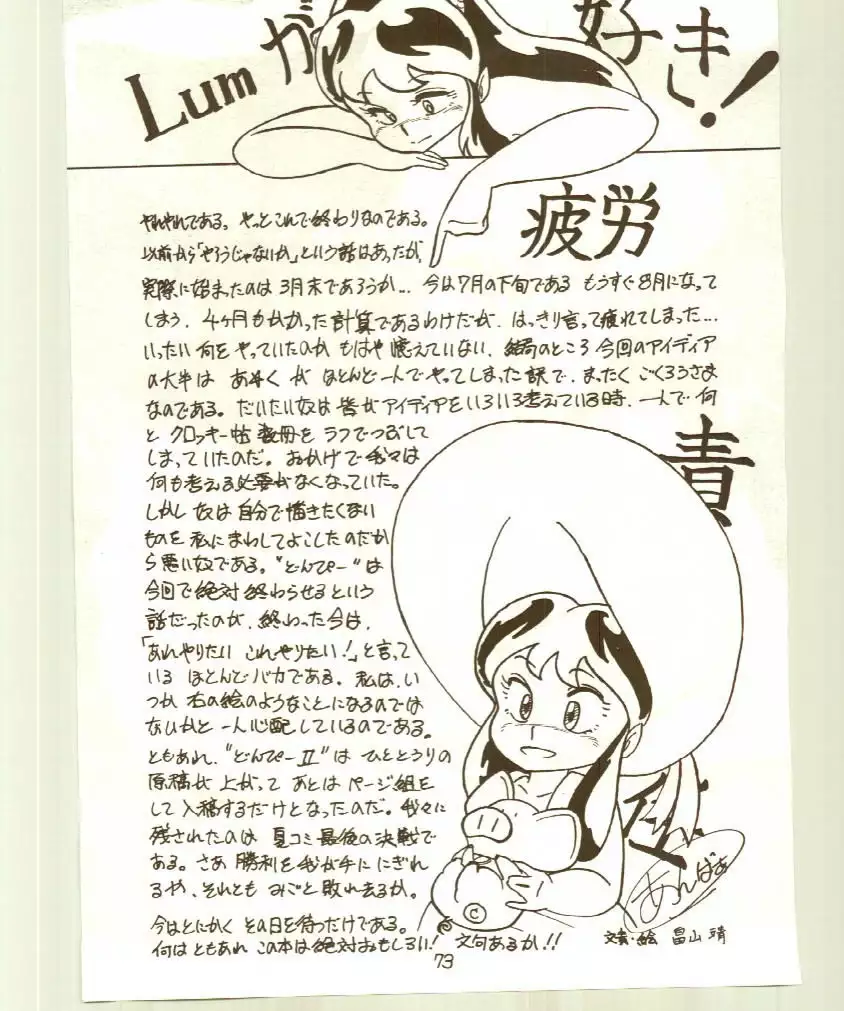 Lumが好き!
疲労
やれやれである。やっとこれで終わりなのである。
以前から「やろうじゃないか」という話はあったが、
実際に始まったのは3月末であろうか… 今は7月の下旬である もうすぐ8月になって
しまう。4ヶ月もかかった計算であるわけだが、はっきり言って疲れてしまった…
いったい何をやっていたのか もはや憶えていない。結局のところ今回のアイディア
の大半は が ほとんど一人でやってしまった訳で、まったく ごくろうさま
なのである。だいたい奴は皆がアイディアをいろいろ考えている時、一人で何
と クロッキー帖 数冊を ラフでつぶして
しまっていたのだ。おかげで我々は
何も考える必要がなくなっていた。
しかし 奴は自分で描きたくない
ものを 私にまわしてよこしたのだか
ら悪い奴である。"どんぴー"は
今回で絶対終わらせるという
話だったのが、終わった今は、
「あれやりたい これやりたい!」と言って
いる ほとんどバカである。私は、い
つか 右の絵のようなことになるのでは
ないかと 一人心配しているのである。
ともあれ、"どんぴーII"は ひととうりの
原稿が 上がって あとは ページ組を
して 入稿するだけとなったのだ。我々に
残されたのは 夏コミ最後の決戦で
ある。さあ 勝利を我が手に にぎれ
るや、それとも みごと敗れ去るか。
今はとにかく その日を待つだけである。
何はともあれ この本は絶対おもしろい! 文句あるか!!
責
あんばぁ
文責・絵 畠山 靖
73